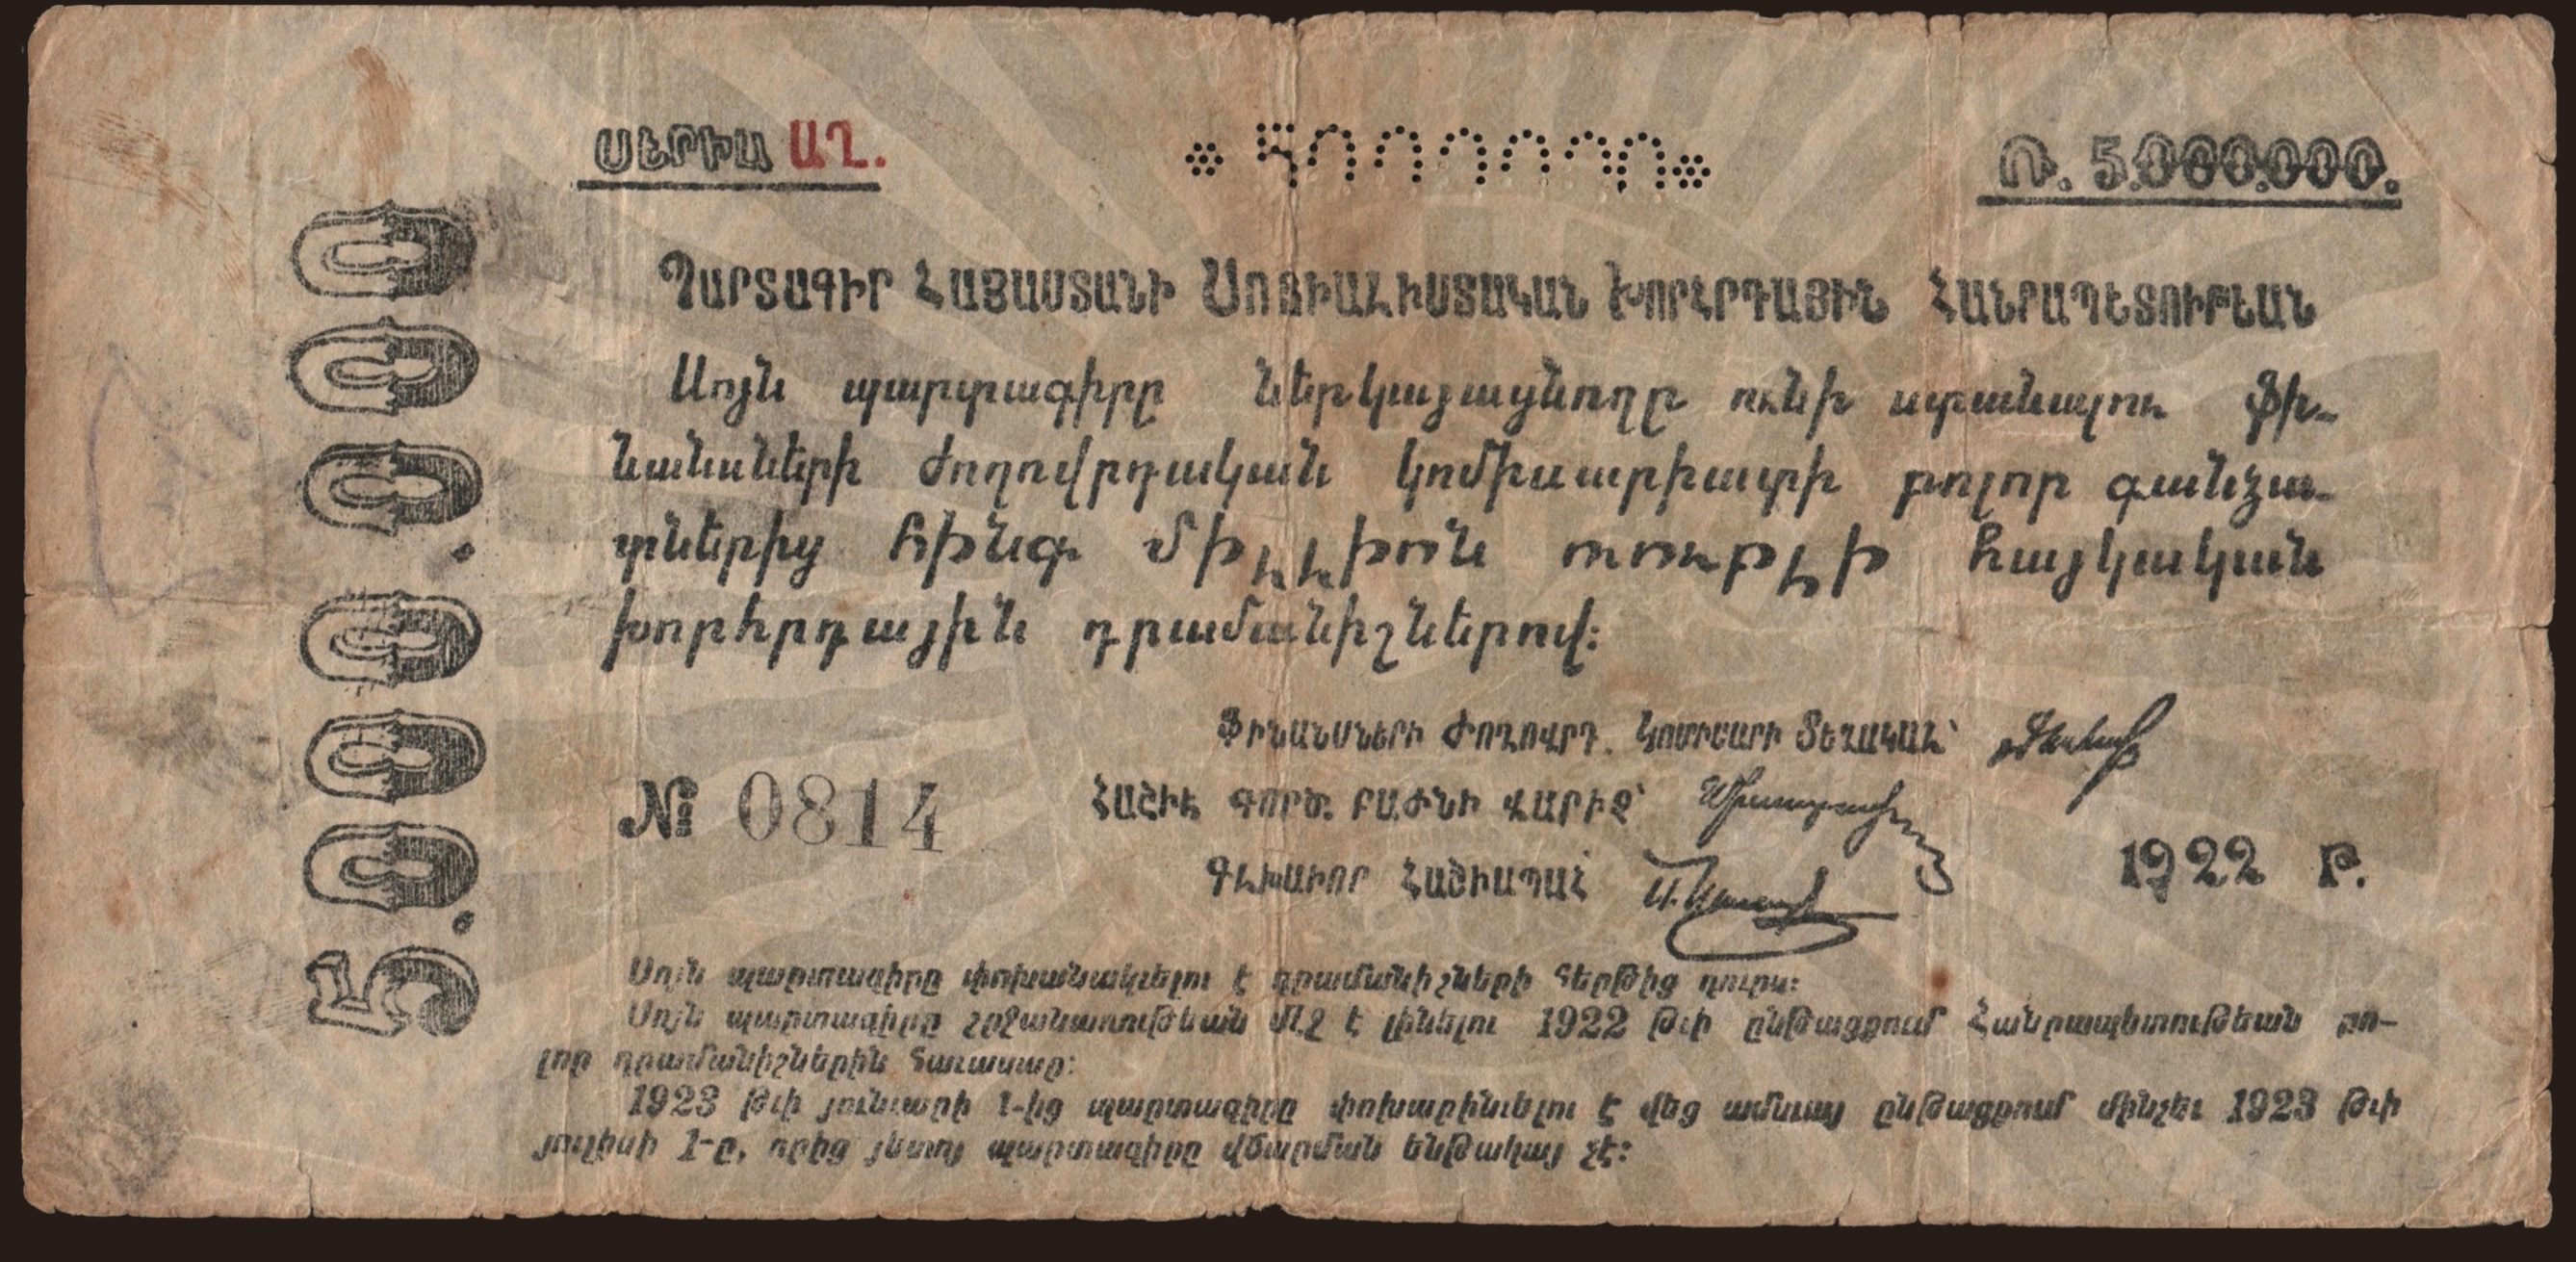 ՍԵՐԻԱ ԱՂ.
5000000
Ռ. 5.000.000.
5.000.000
ՊԱՐՏԱԳԻՐ ՀԱՅԱՍՏԱՆԻ ՍՈՑԻԱԼԻՍՏԱԿԱՆ ԽՈՐՀՐԴԱՅԻՆ ՀԱՆՐԱՊԵՏՈՒԹԵԱՆ
Սոյն պարտագիրը ներկայացնողը ունի ստանալու ֆի-
նանսների ժողովրդական կոմիսարիատի բոլոր գանձա-
տներից հինգ միլլիոն ռուբլի հայկական
խորհրդային դրամանիշներով:
ՖԻՆԱՆՍՆԵՐԻ ԺՈՂՈՎՐԴ. ԿՈՄԻՍԱՐԻ ՏԵՂԱԿԱԼ՝
№ 0814
ՀԱՇԻՒ ԳՈՐԾ. ԲԱԺՆԻ ՎԱՐԻՉ՝
ԳԼԽԱՒՈՐ ՀԱՇՒԱՊԱՀ՝
1922 Թ.
Սոյն պարտագիրը փոխանակւելու է դրամանիշների հերթից դուրս:
Սոյն պարտագիրը շրջանառութեան մէջ է լինելու 1922 թւի ընթացքում Հանրապետութեան բո-
լոր դրամանիշներին հաւասար:
1923 թւի յունւարի 1-ից պարտագիրը փոխարինւելու է վեց ամսւայ ընթացքում մինչեւ 1923 թւի
յուլիսի 1-ը, որից յետոյ պարտագիրը վճարման ենթակայ չէ: